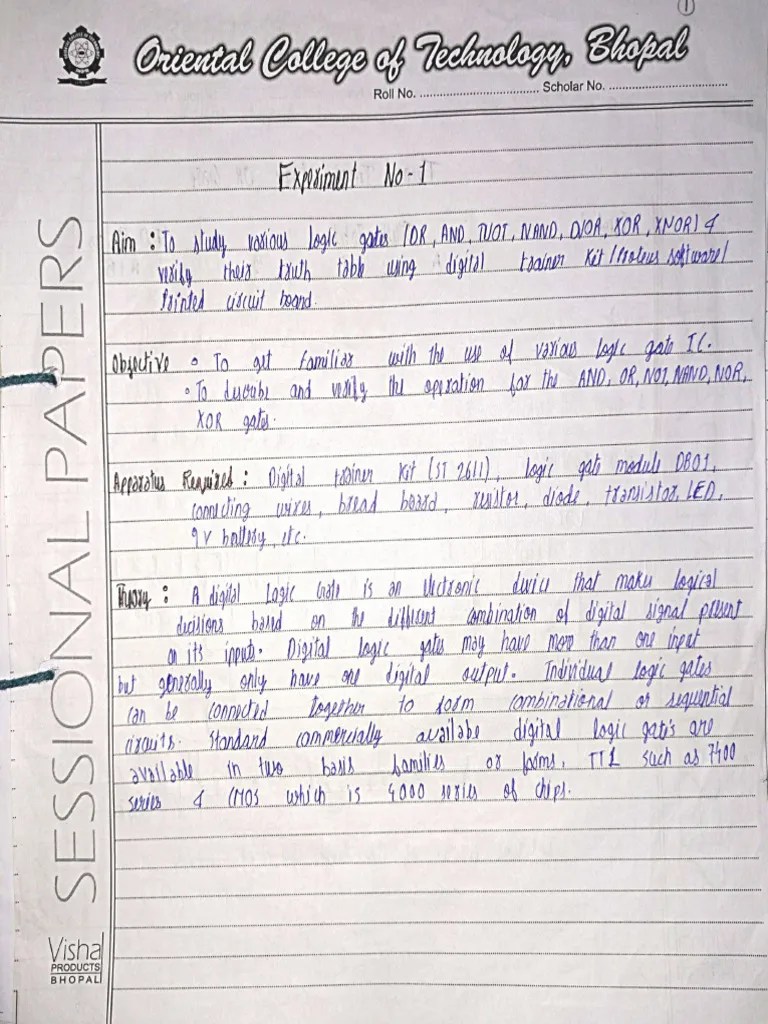 1
Oriental College of Technology, Bhopal
Roll No. .................................. Scholar No. ..................................
SESSIONAL PAPERS
Experiment No - 1
Aim : To study various logic gates (OR, AND, NOT, NAND, NOR, XOR, XNOR) &
verify their truth table using digital trainer Kit / Proteus software /
Printed circuit board.
Objective • To get familiar with the use of various logic gate IC.
• To describe and verify the operation for the AND, OR, NOT, NAND, NOR,
XOR gates.
Apparatus Required : Digital trainer Kit (ST 2611), logic gate module DB01,
connecting wires, bread board, resistor, diode, transistor, LED,
9 V battery, etc.
Theory : A digital Logic Gate is an electronic device that makes logical
decisions based on the different combination of digital signal present
on its inputs. Digital logic gates may have more than one input
but generally only have one digital output. Individual logic gates
can be connected together to form combinational or sequential
circuits. Standard commercially available digital logic gate's are
available in two basis families or forms, TTL such as 7400
series & CMOS which is 4000 series of chips.
Vishal
PRODUCTS
BHOPAL